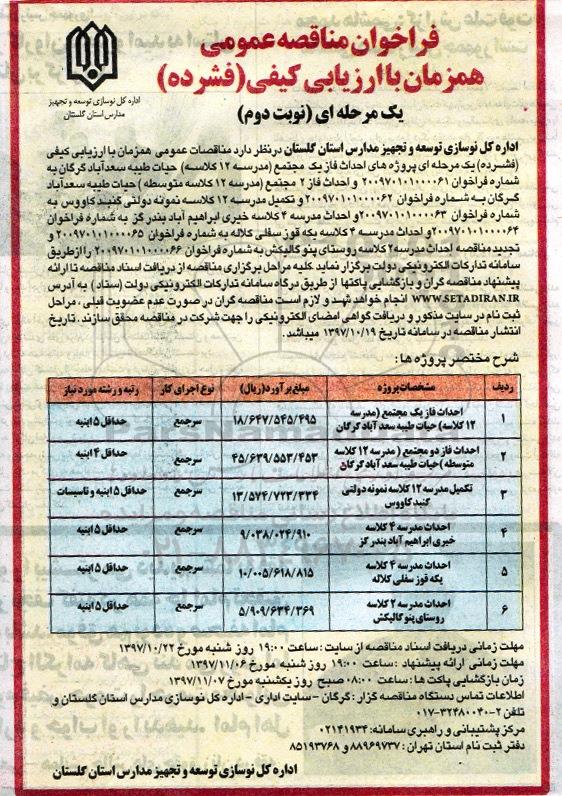 فراخوان مناقصه عمومی
همزمان با ارزیابی کیفی (فشرده)
یک مرحله ای (نوبت دوم)
اداره کل نوسازی توسعه و تجهیز
مدارس استان گلستان
اداره کل نوسازی توسعه و تجهیز مدارس استان گلستان در نظر دارد مناقصات عمومی همزمان با ارزیابی کیفی
(فشرده) یک مرحله ای پروژه های احداث فاز یک مجتمع (مدرسه ۱۲ کلاسه) حیات طیبه سعدآباد گرگان به
شماره فراخوان ۲۰۰۹۷۰۱۰۱۰۰۰۰۶۱ و احداث فاز ۲ مجتمع (مدرسه ۱۲ کلاسه متوسطه) حیات طیبه سعدآباد
گرگان به شماره فراخوان ۲۰۰۹۷۰۱۰۱۰۰۰۰۶۲ و تکمیل مدرسه ۱۲ کلاسه نمونه دولتی گنبد کاووس به
شماره فراخوان ۲۰۰۹۷۰۱۰۱۰۰۰۰۶۳ و احداث مدرسه ۴ کلاسه خیری ابراهیم آباد بندر گز به شماره فراخوان
۲۰۰۹۷۰۱۰۱۰۰۰۰۶۴ و احداث مدرسه ۴ کلاسه یکه قوز سفلی کلاله به شماره فراخوان ۲۰۰۹۷۰۱۰۱۰۰۰۰۶۵ و
تجدید مناقصه احداث مدرسه ۲ کلاسه روستای پنو گالیکش به شماره فراخوان ۲۰۰۹۷۰۱۰۱۰۰۰۰۶۶ را از طریق
سامانه تدارکات الکترونیکی دولت برگزار نماید کلیه مراحل برگزاری مناقصه از دریافت اسناد مناقصه تا ارائه
پیشنهاد مناقصه گران و بازگشایی پاکتها از طریق درگاه سامانه تدارکات الکترونیکی دولت (ستاد) به آدرس
WWW.SETADIRAN.IR انجام خواهد شد و لازم است مناقصه گران در صورت عدم عضویت قبلی، مراحل
ثبت نام در سایت مذکور و دریافت گواهی امضای الکترونیکی را جهت شرکت در مناقصه محقق سازند. تاریخ
انتشار مناقصه در سامانه تاریخ ۱۳۹۷/۱۰/۱۹ میباشد.
شرح مختصر پروژه ها:
ردیف مشخصات پروژه مبلغ برآورد (ریال) نوع اجرای کار رتبه و رشته مورد نیاز
۱ احداث فاز یک مجتمع (مدرسه ۱۲ کلاسه) حیات طیبه سعد آباد گرگان ۱۸/۶۴۷/۵۴۵/۴۹۵ سرجمع حداقل ۵ ابنیه
۲ احداث فاز دو مجتمع (مدرسه ۱۲ کلاسه متوسطه) حیات طیبه سعد آباد گرگان ۴۵/۶۳۹/۵۵۳/۴۵۳ سرجمع حداقل ۴ ابنیه
۳ تکمیل مدرسه ۱۲ کلاسه نمونه دولتی گنبد کاووس ۱۳/۵۷۴/۷۲۳/۳۳۴ سرجمع حداقل ۵ ابنیه و تاسیسات
۴ احداث مدرسه ۴ کلاسه خیری ابراهیم آباد بندر گز ۹/۰۳۸/۰۲۴/۹۱۰ سرجمع حداقل ۵ ابنیه
۵ احداث مدرسه ۴ کلاسه یکه قوز سفلی کلاله ۱۰/۰۰۵/۶۱۸/۸۱۵ سرجمع حداقل ۵ ابنیه
۶ احداث مدرسه ۲ کلاسه روستای پنو گالیکش ۵/۹۰۹/۶۳۴/۳۶۹ سرجمع حداقل ۵ ابنیه
مهلت زمانی دریافت اسناد مناقصه از سایت: ساعت ۱۹:۰۰ روز شنبه مورخ ۱۳۹۷/۱۰/۲۲
مهلت زمانی ارائه پیشنهاد: ساعت ۱۹:۰۰ روز شنبه مورخ ۱۳۹۷/۱۱/۰۶
زمان بازگشایی پاکت ها: ساعت ۰۸:۰۰ صبح روز یکشنبه مورخ ۱۳۹۷/۱۱/۰۷
اطلاعات تماس دستگاه مناقصه گزار: گرگان - سایت اداری - اداره کل نوسازی مدارس استان گلستان و
تلفن ۲-۳۲۴۸۰۰۴۰-۰۱۷
مرکز پشتیبانی و راهبری سامانه: ۰۲۱۴۱۹۳۴
دفتر ثبت نام استان تهران: ۸۸۹۶۹۷۳۷ و ۸۵۱۹۳۷۶۸
اداره کل نوسازی توسعه و تجهیز مدارس استان گلستان